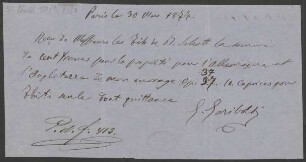 Paris le 30 Mars 1877
Reçu de Messieurs les fils de B. Schott la somme
de cent francs pour la propriété pour l'Allemagne et
37
l'Angleterre de mon ouvrage Op: caprices pour
flûte seule Dont quittance
G. Gariboldi
P. d. f. 413.